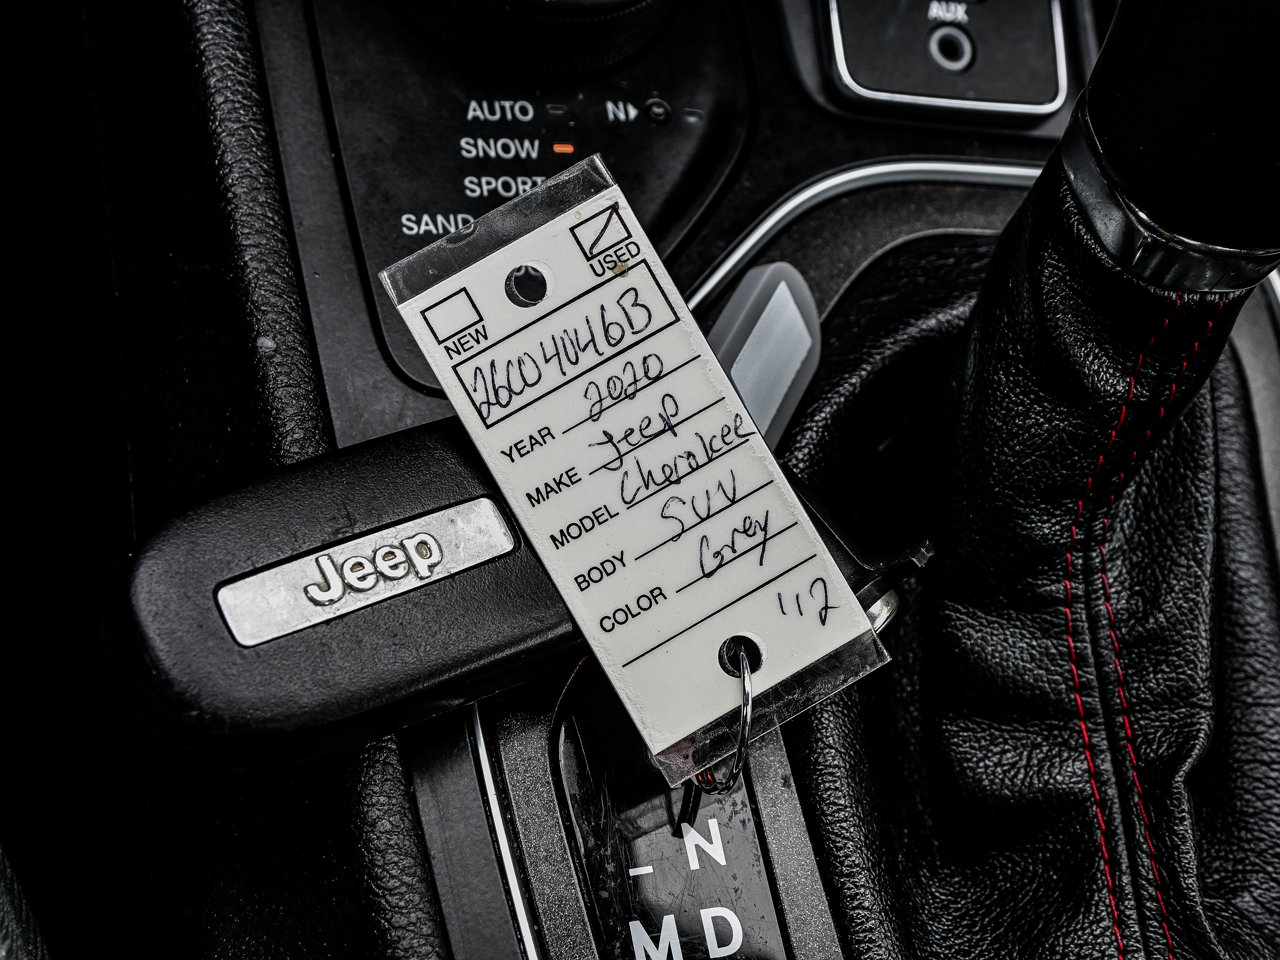 AUX
AUTO N
SNOW
SPORT
SAND
USED
NEW
26C04046B
YEAR 2020
MAKE Jeep
MODEL Cherokee
BODY SUV
COLOR Grey
'12
Jeep
N
M D